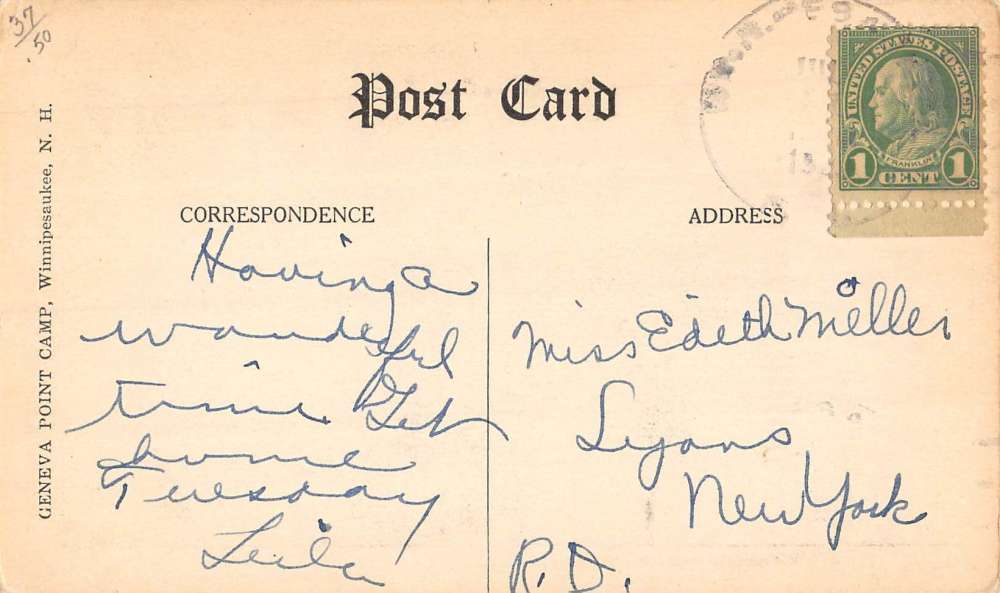 37
.50
GENEVA POINT CAMP, Winnipesaukee, N. H.
Post Card
UNITED STATES POSTAGE
FRANKLIN
1 CENT 1
CORRESPONDENCE
ADDRESS
Having a
wonderful
time. Get
home
Tuesday
Leila
Miss Edeth Miller
Lyons
New York
R. D.